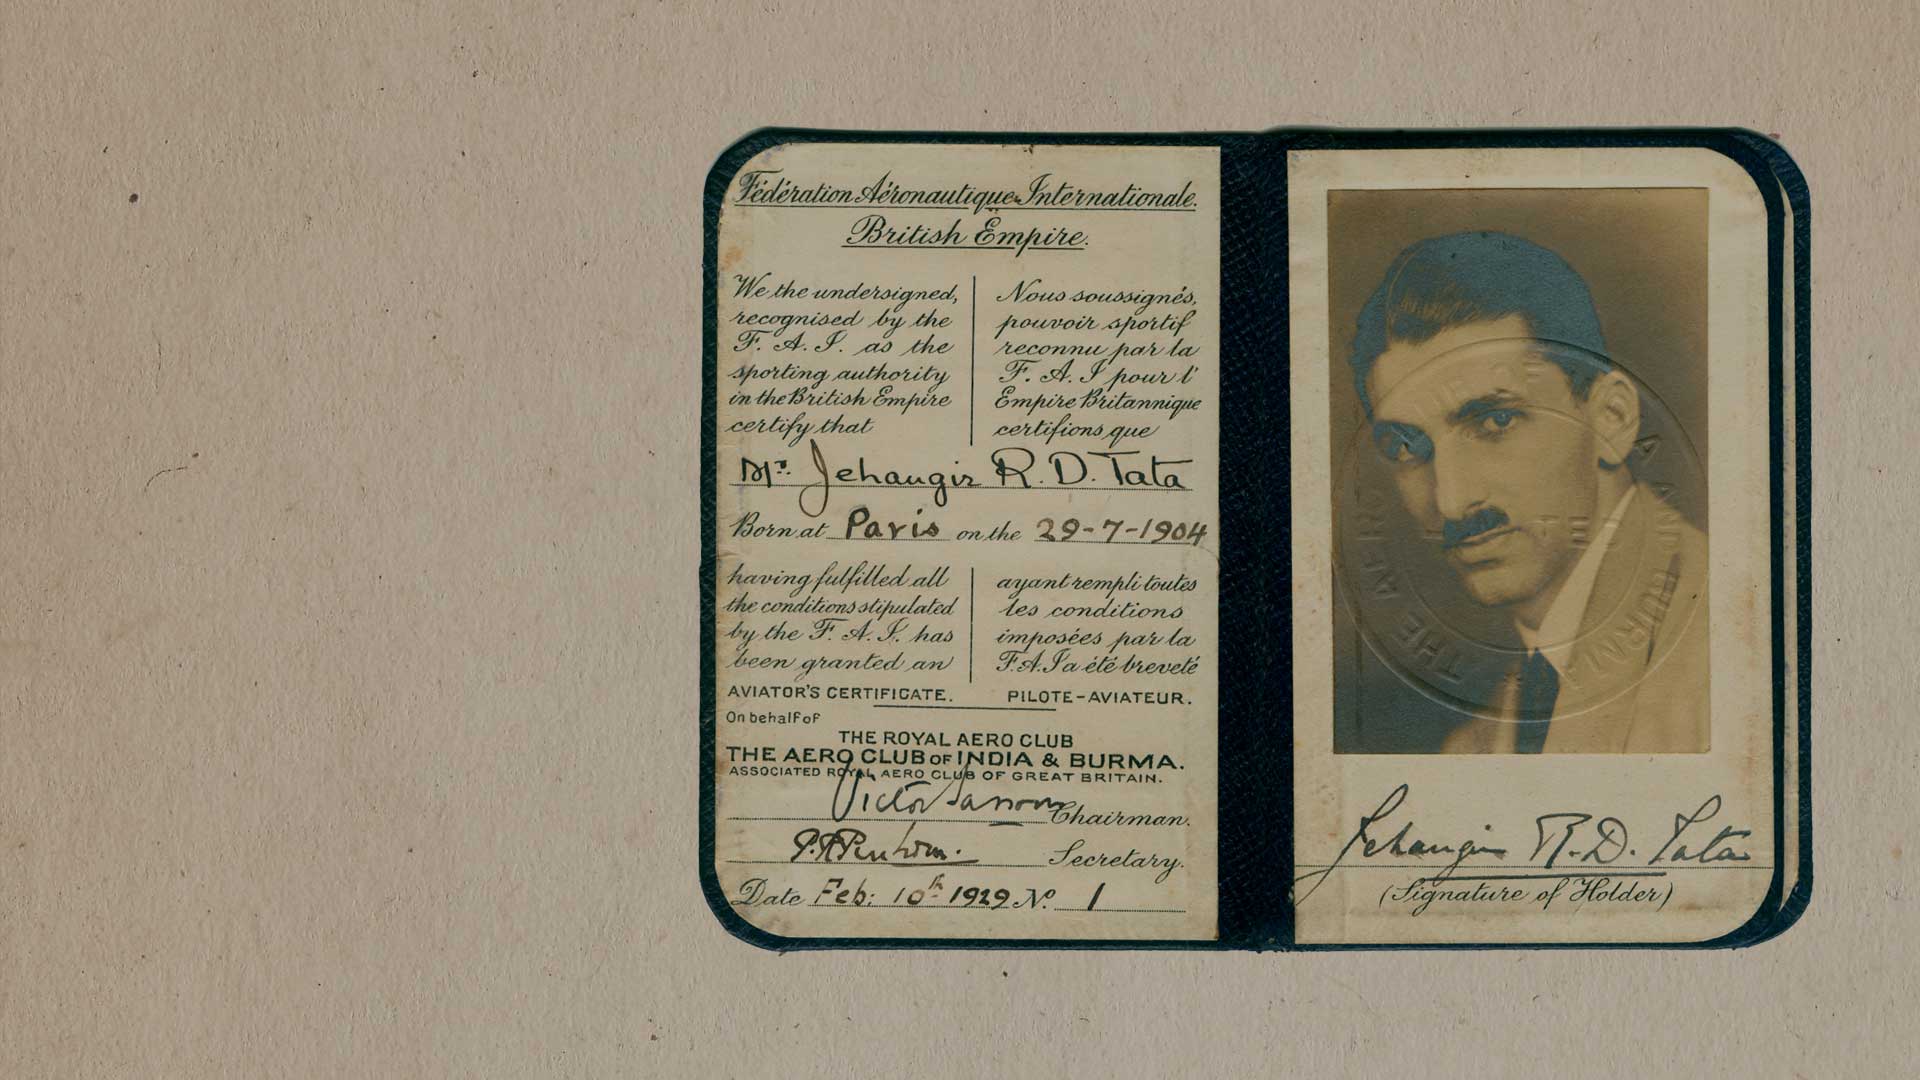 Fédération Aéronautique Internationale.
British Empire.
We the undersigned,
recognised by the
F. A. I. as the
sporting authority
in the British Empire
certify that
Nous soussignés,
pouvoir sportif
reconnu par la
F. A. I pour l'
Empire Britannique
certifions que
Mr. Jehangir R. D. Tata
Born at Paris on the 29-7-1904
having fulfilled all
the conditions stipulated
by the F. A. I. has
been granted an
AVIATOR'S CERTIFICATE.
ayant rempli toutes
les conditions
imposées par la
F.A.I a été breveté
PILOTE-AVIATEUR.
On behalf of
THE ROYAL AERO CLUB
THE AERO CLUB OF INDIA & BURMA.
ASSOCIATED ROYAL AERO CLUB OF GREAT BRITAIN.
Victor Sassoon Chairman.
Secretary.
Date Feb: 10th 1929 No. 1
THE AERO AND BURMA
Jehangir R. D. Tata
(Signature of Holder)